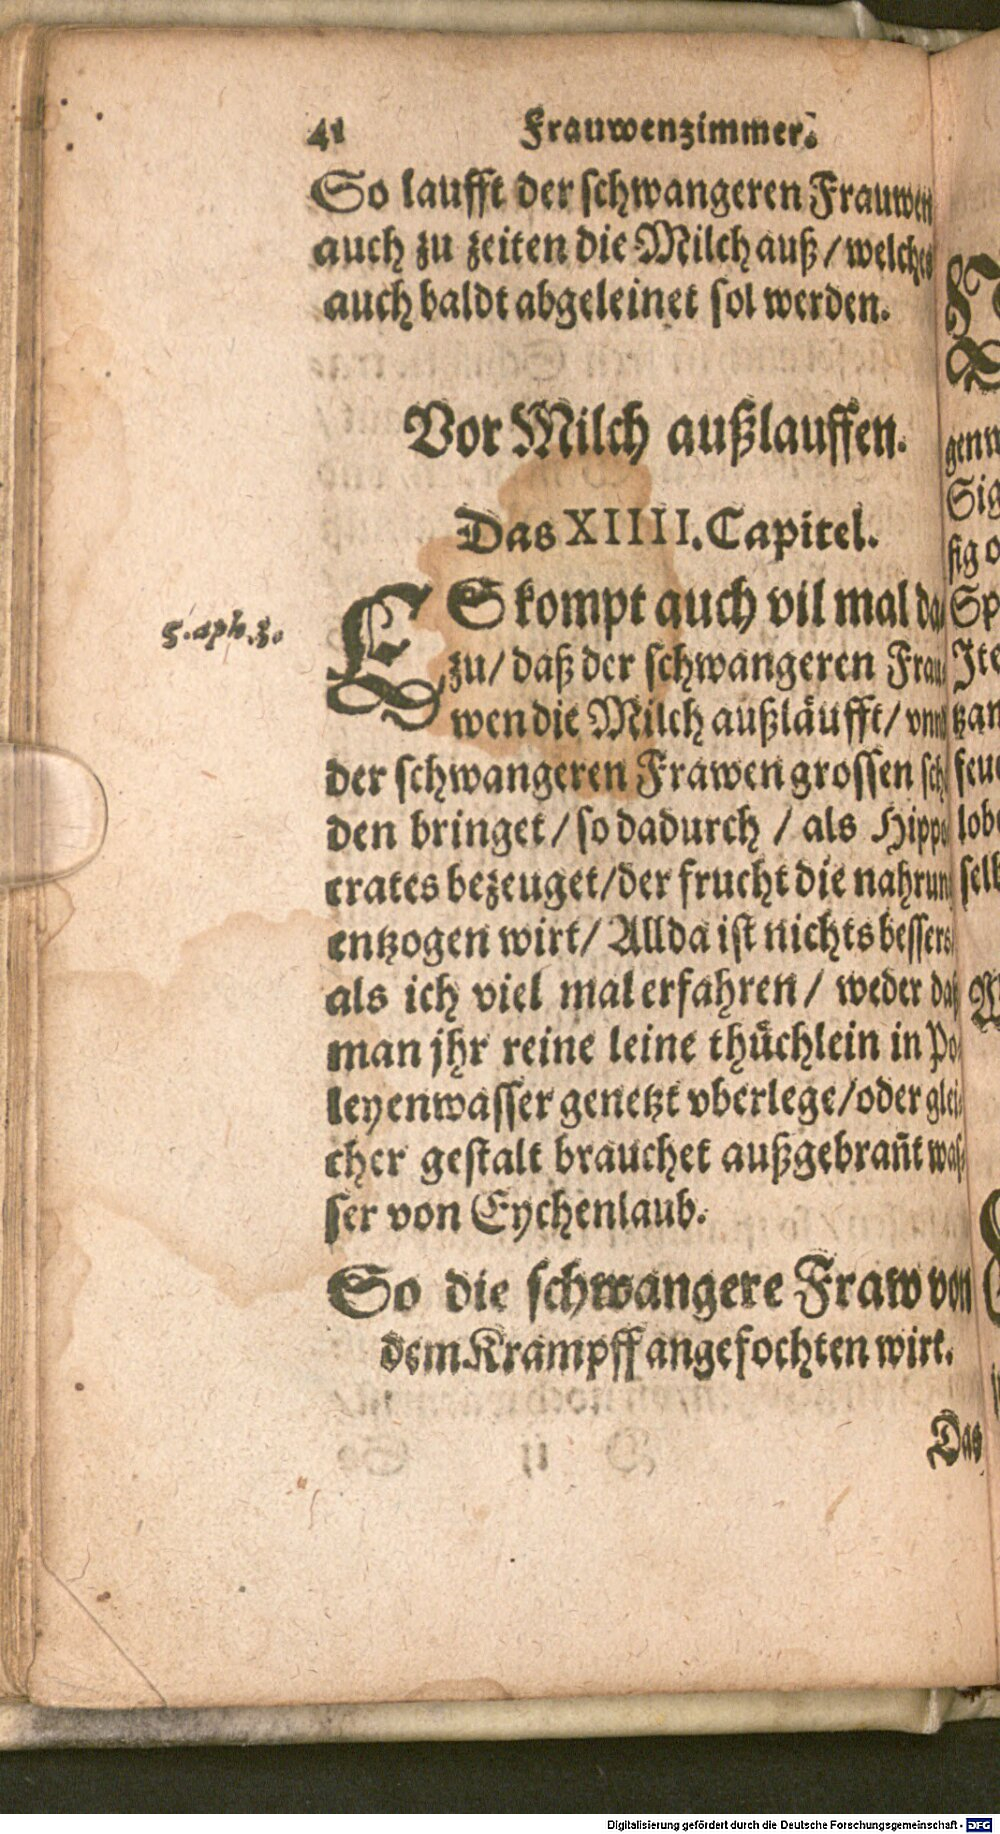 41 Frauwenzimmer.
So laufft der schwangeren Frauwen
auch zu zeiten die Milch auß / welches
auch baldt abgeleinet sol werden.
Vor Milch außlauffen.
Das XIIII. Capitel.
ES kompt auch vil mal da
zu / daß der schwangeren Frau
wen die Milch außläufft / vnnd
der schwangeren Frawen grossen sch
den bringet / so dadurch / als Hippo
crates bezeuget / der frucht die nahrun
entzogen wirt / Allda ist nichts bessers
als ich viel mal erfahren / weder daß
man jhr reine leine thüchlein in Po
leyenwasser genetzt vberlege / oder glei
cher gestalt brauchet außgebrañt was
ser von Eychenlaub.
5. aph. 3.
So die schwangere Fraw von
dem Krampff angefochten wirt.
Das
genw
Sig
sig o
Sp
Ite
tzan
feuc
lobe
selb
Digitalisierung gefördert durch die Deutsche Forschungsgemeinschaft - DFG